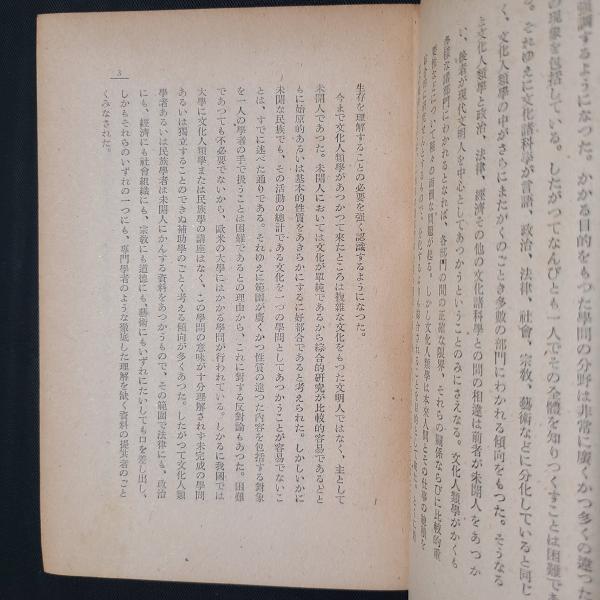 強調するようになつた。かかる目的をもつた學問の分野は非常に廣くかつ多くの違つた
の現象を包括している。したがつてなんびとも一人でその全體を知りつくすことは困難であ
る。それゆえに文化諸科學が言語、政治、法律、社會、宗敎、藝術などに分化していると同じ
く、文化人類學の中がさらにまたがくのごとき多數の部門にわかれる傾向をもつた。そうなる
と文化人類學と政治、法律、經濟その他の文化諸科學との間の相違は前者が未開人をあつか
い、後者が現代文明人を中心としてあつかうということのみにさえなる。文化人類學がかくも
各樣な諸部門にわかれるとなれば、各部門の間の正確な限界、それらの關係ならびに比較的重
々の面倒な問題が起る。しかし文化人類學は本來人間とその仕事の種類を
生存を理解することの必要を强く認識するようになつた。
今まで文化人類學があつかつて來たところは複雜な文化をもつた文明人ではなく、主として
未開人であつた。未開人においては文化が單純であるから綜合的硏究が比較的容易であるとと
もに始原的あるいは基本的性質をあきらかにするに好都合であると考えられた。しかしいかに
未開な民族でも、その活動の總計である文化を一つの學問としてあつかうことが容易でないこ
とは、すでに述べた通りである。それゆえに範圍が廣くかつ性質の違つた內容を包括する對象
を一人の學者の手で扱うことは困難であるとの理由から、これに對する反對論もあつた。困難
であつても不必要でないから、歐米の大學にはかかる學問が行われている。しかるに我國では
大學に文化人類學または民族學の講座はなく、この學問の意味が十分理解されず未完成の學問
あるいは獨立することのできぬ補助學のごとく考える傾向が多くあつた。したがつて文化人類
學者あるいは民族學者は未開人にかんする資料をあつかうもので、その範圍で法律にも、政治
にも、經濟にも社會組織にも、宗敎にも道德にも、藝術にもいずれにたいしても口を差し出し、
しかもそれらのいずれの一つにも、專門學者のような徹底した理解を缺く資料の提供者のごと
くみなされた。
3